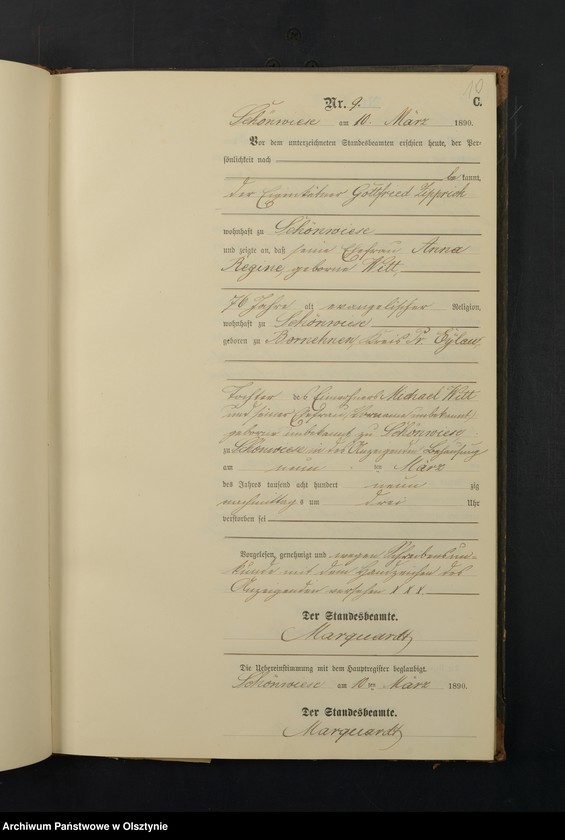 10
Nr. 9.
C.
Schönwiese am 10. März 1890.
Vor dem unterzeichneten Standesbeamten erschien heute, der Per-
sönlichkeit nach
be kannt,
der Eigenkätner Gottfried Zipprick
wohnhaft zu Schönwiese
und zeigte an, daß seine Ehefrau Anna
Regine, geborne Witt,
76 Jahre alt evangelischer Religion,
wohnhaft zu Schönwiese
geboren zu Bornehnen, Kreis Pr. Eylau,
Tochter des Einwohners Michael Witt
und seiner Ehefrau, (Vorname unbekannt)
geborne unbekannt zu Schönwiese
zu Schönwiese in des Anzeigenden Behausung
am neun ten März
des Jahres tausend acht hundert neun zig
nachmittag s um drei Uhr
verstorben sei
Vorgelesen, genehmigt und wegen Schreibensun-
kunde mit dem Handzeichen des
Anzeigenden versehen X X X
Der Standesbeamte.
Marquardt
Die Uebereinstimmung mit dem Hauptregister beglaubigt.
Schönwiese am 10 ten März 1890.
Der Standesbeamte.
Marquardt
Archiwum Państwowe w Olsztynie